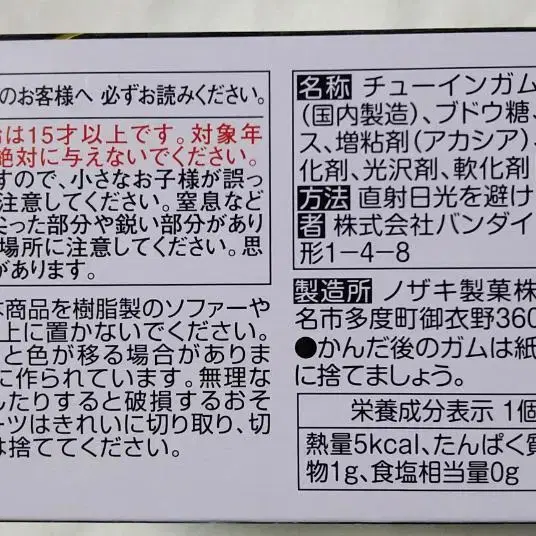 のお客様へ 必ずお読みください。
は15才以上です。対象年
絶対に与えないでください。
すので、小さなお子様が誤っ
注意してください。窒息など
尖った部分や鋭い部分があり
場所に注意してください。思
があります。
は商品を樹脂製のソファーや
上に置かないでください。
と色が移る場合がありま
に作られています。無理な
したりすると破損するおそ
ーツはきれいに切り取り、切
は捨ててください。
名称 チューインガム
(国内製造)、ブドウ糖、
ス、増粘剤(アカシア)、
化剤、光沢剤、軟化剤
方法 直射日光を避け
者 株式会社バンダイ
形1-4-8
製造所 ノザキ製菓株
名市多度町御衣野360
●かんだ後のガムは紙
に捨てましょう。
栄養成分表示 1個
熱量5kcal、たんぱく質
物1g、食塩相当量0g